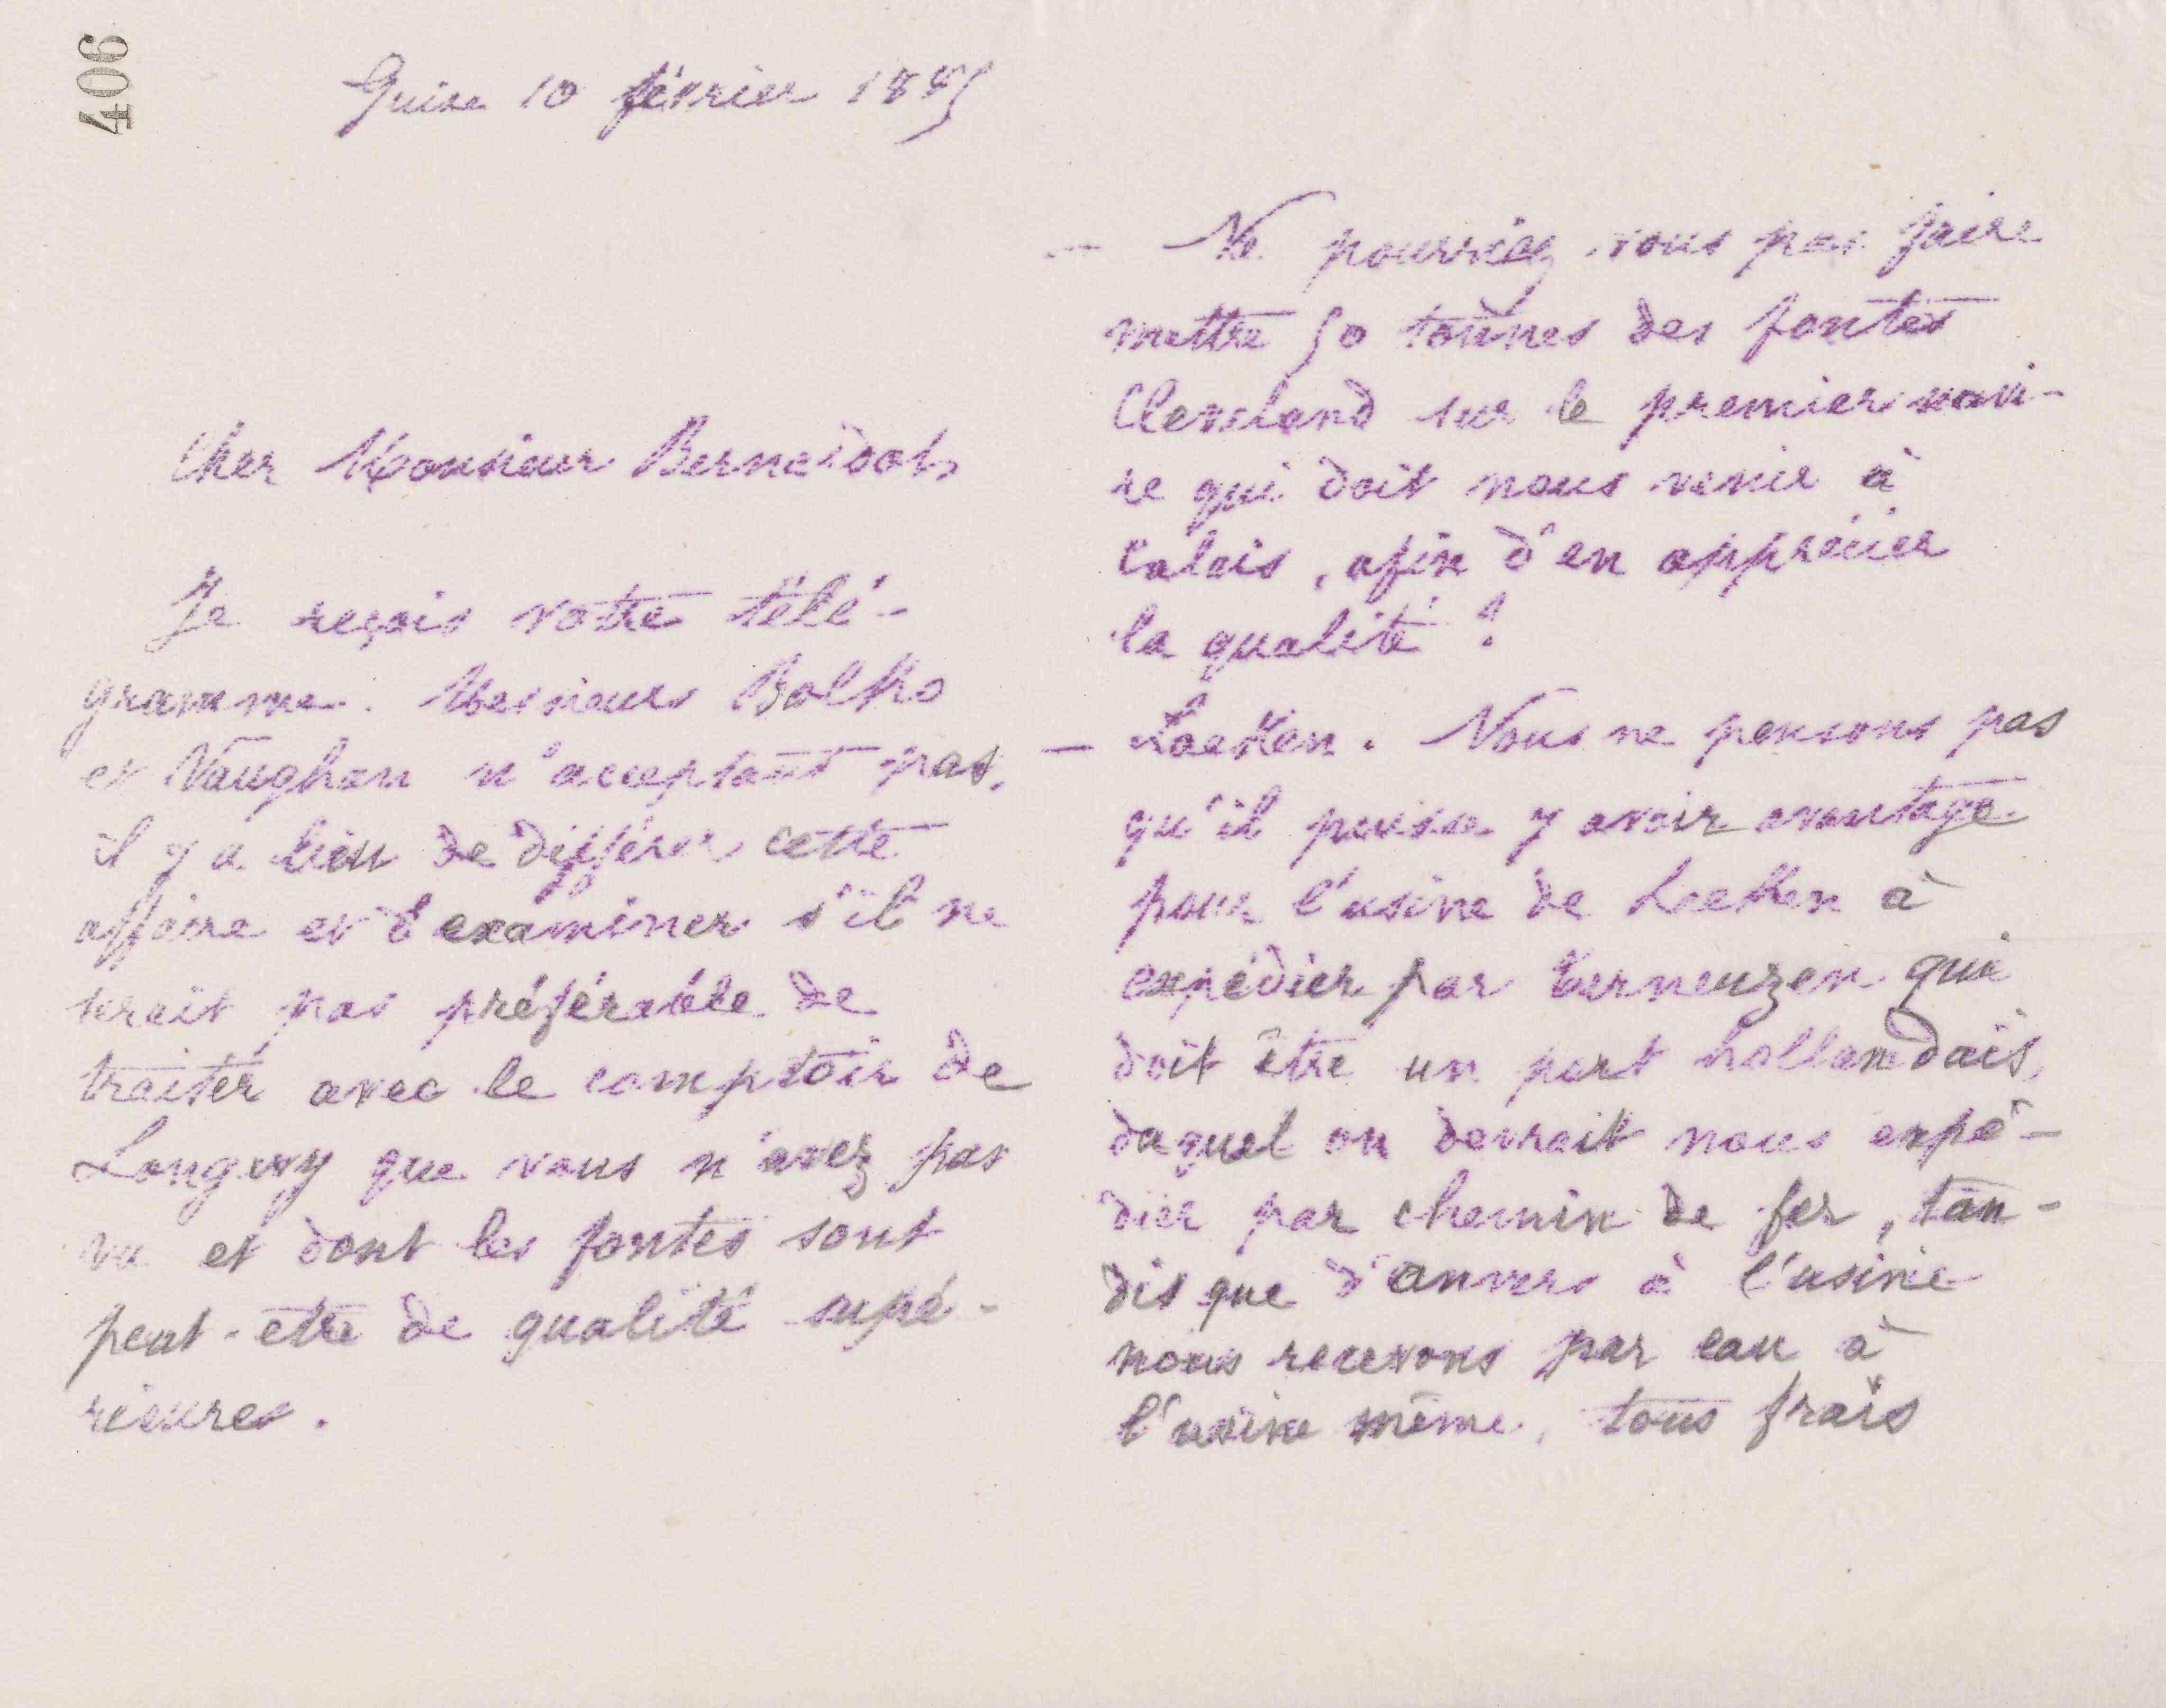 406
Guise 10 février 1885
Cher Monsieur Bernardot,
Je reçois votre télé-
gramme. Messieurs Bolkho
et Vaughan n'acceptant pas,
il y a lieu de différer cette
affaire et d'examiner s'il ne
serait pas préférable de
traiter avec le comptoir de
Longwy que vous n'avez pas
vu et dont les fontes sont
peut-être de qualité supé-
rieures.
— Ne pourriez vous pas faire
mettre 50 tonnes des fontes
Cleveland sur le premier navi-
re qui doit nous venir à
Calais, afin d'en apprécier
la qualité ?
— Laeken. Nous ne pensons pas
qu'il puisse y avoir avantage
pour l'usine de Laeken à
expédier par Terneuzen qui
doit être un port hollandais,
duquel on devrait nous expé-
dier par chemin de fer, tan-
dis que d'anvers à l'usine
nous recevons par eau à
l'usine même, tous frais